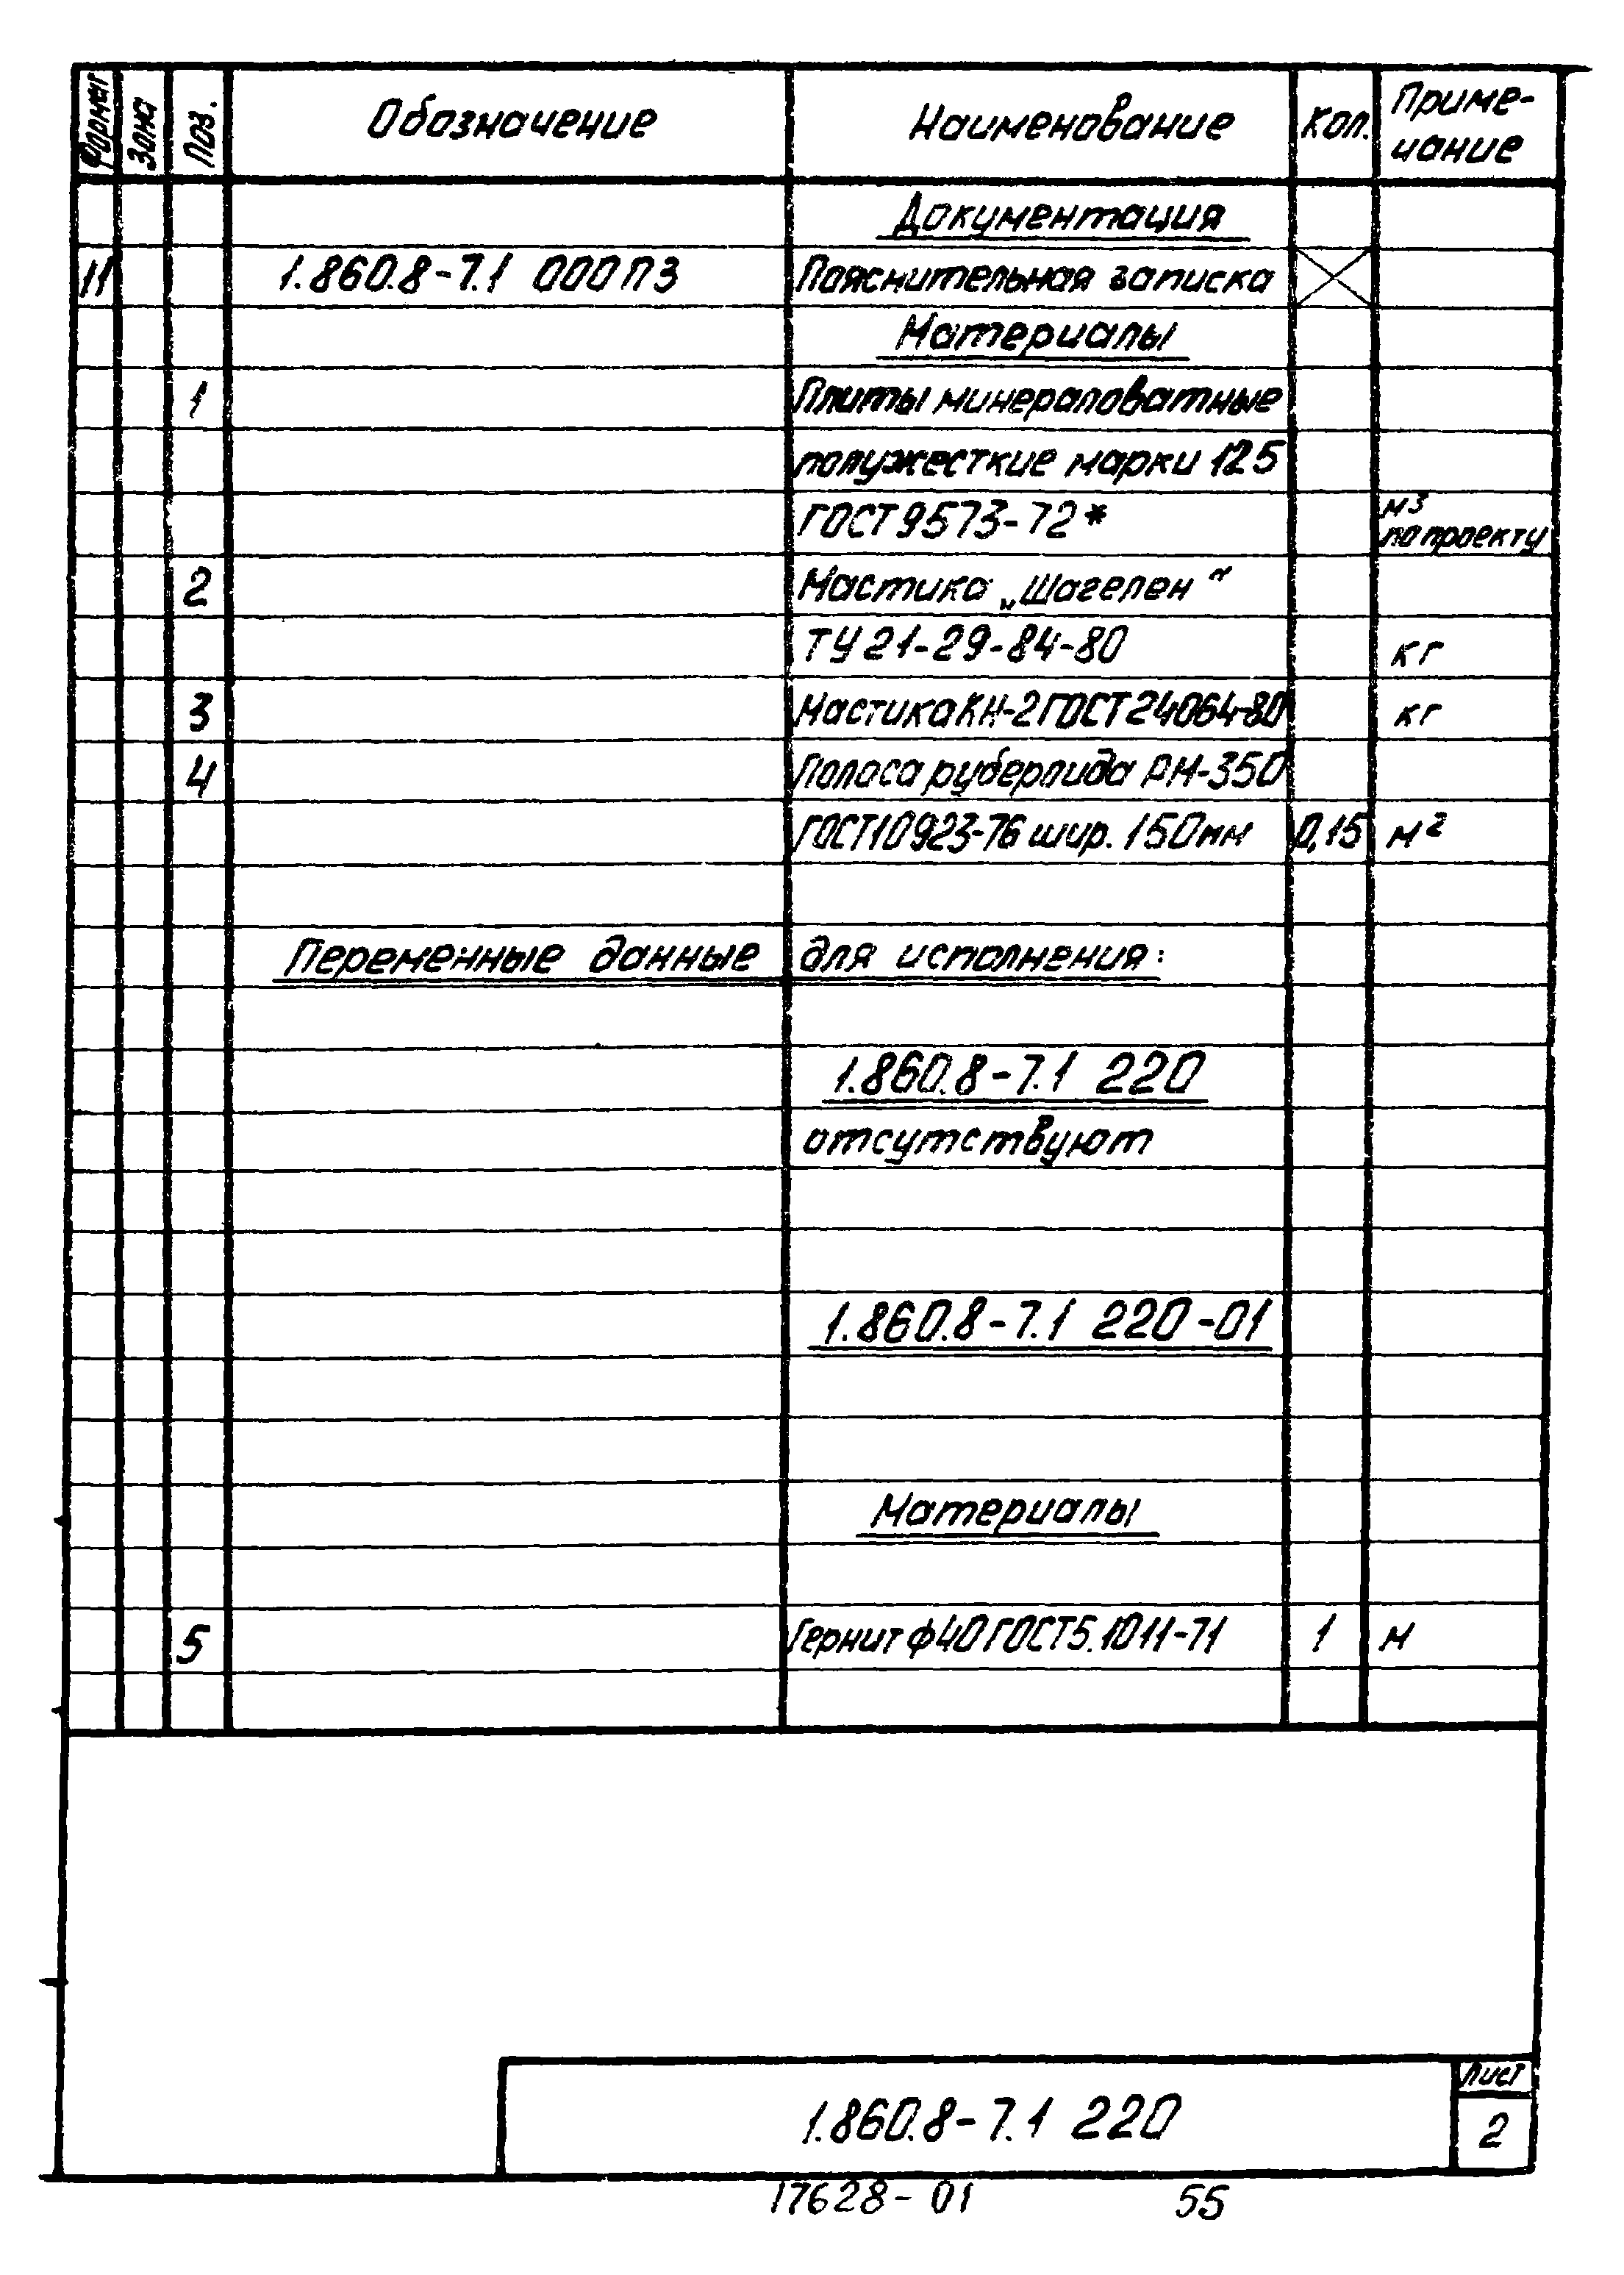 Формат Зона Поз. Обозначение Наименование Кол. Приме-
чание
Документация
11 1.860.8-7.1 000ПЗ Пояснительная записка
Материалы
1 Плиты минераловатные
полужесткие марки 125
ГОСТ 9573-72* м³
по проекту
2 Мастика „Шагелен“
ТУ 21-29-84-80 кг
3 Мастика КН-2 ГОСТ 24064-80 кг
4 Полоса рубероида РМ-350
ГОСТ 10923-76 шир. 150мм 0,15 м²
Переменные данные для исполнения:
1.860.8-7.1 220
отсутствуют
1.860.8-7.1 220-01
Материалы
5 Гернит ф40 ГОСТ 5.1011-71 1 м
Лист
1.860.8-7.1 220 2
17628-01 55